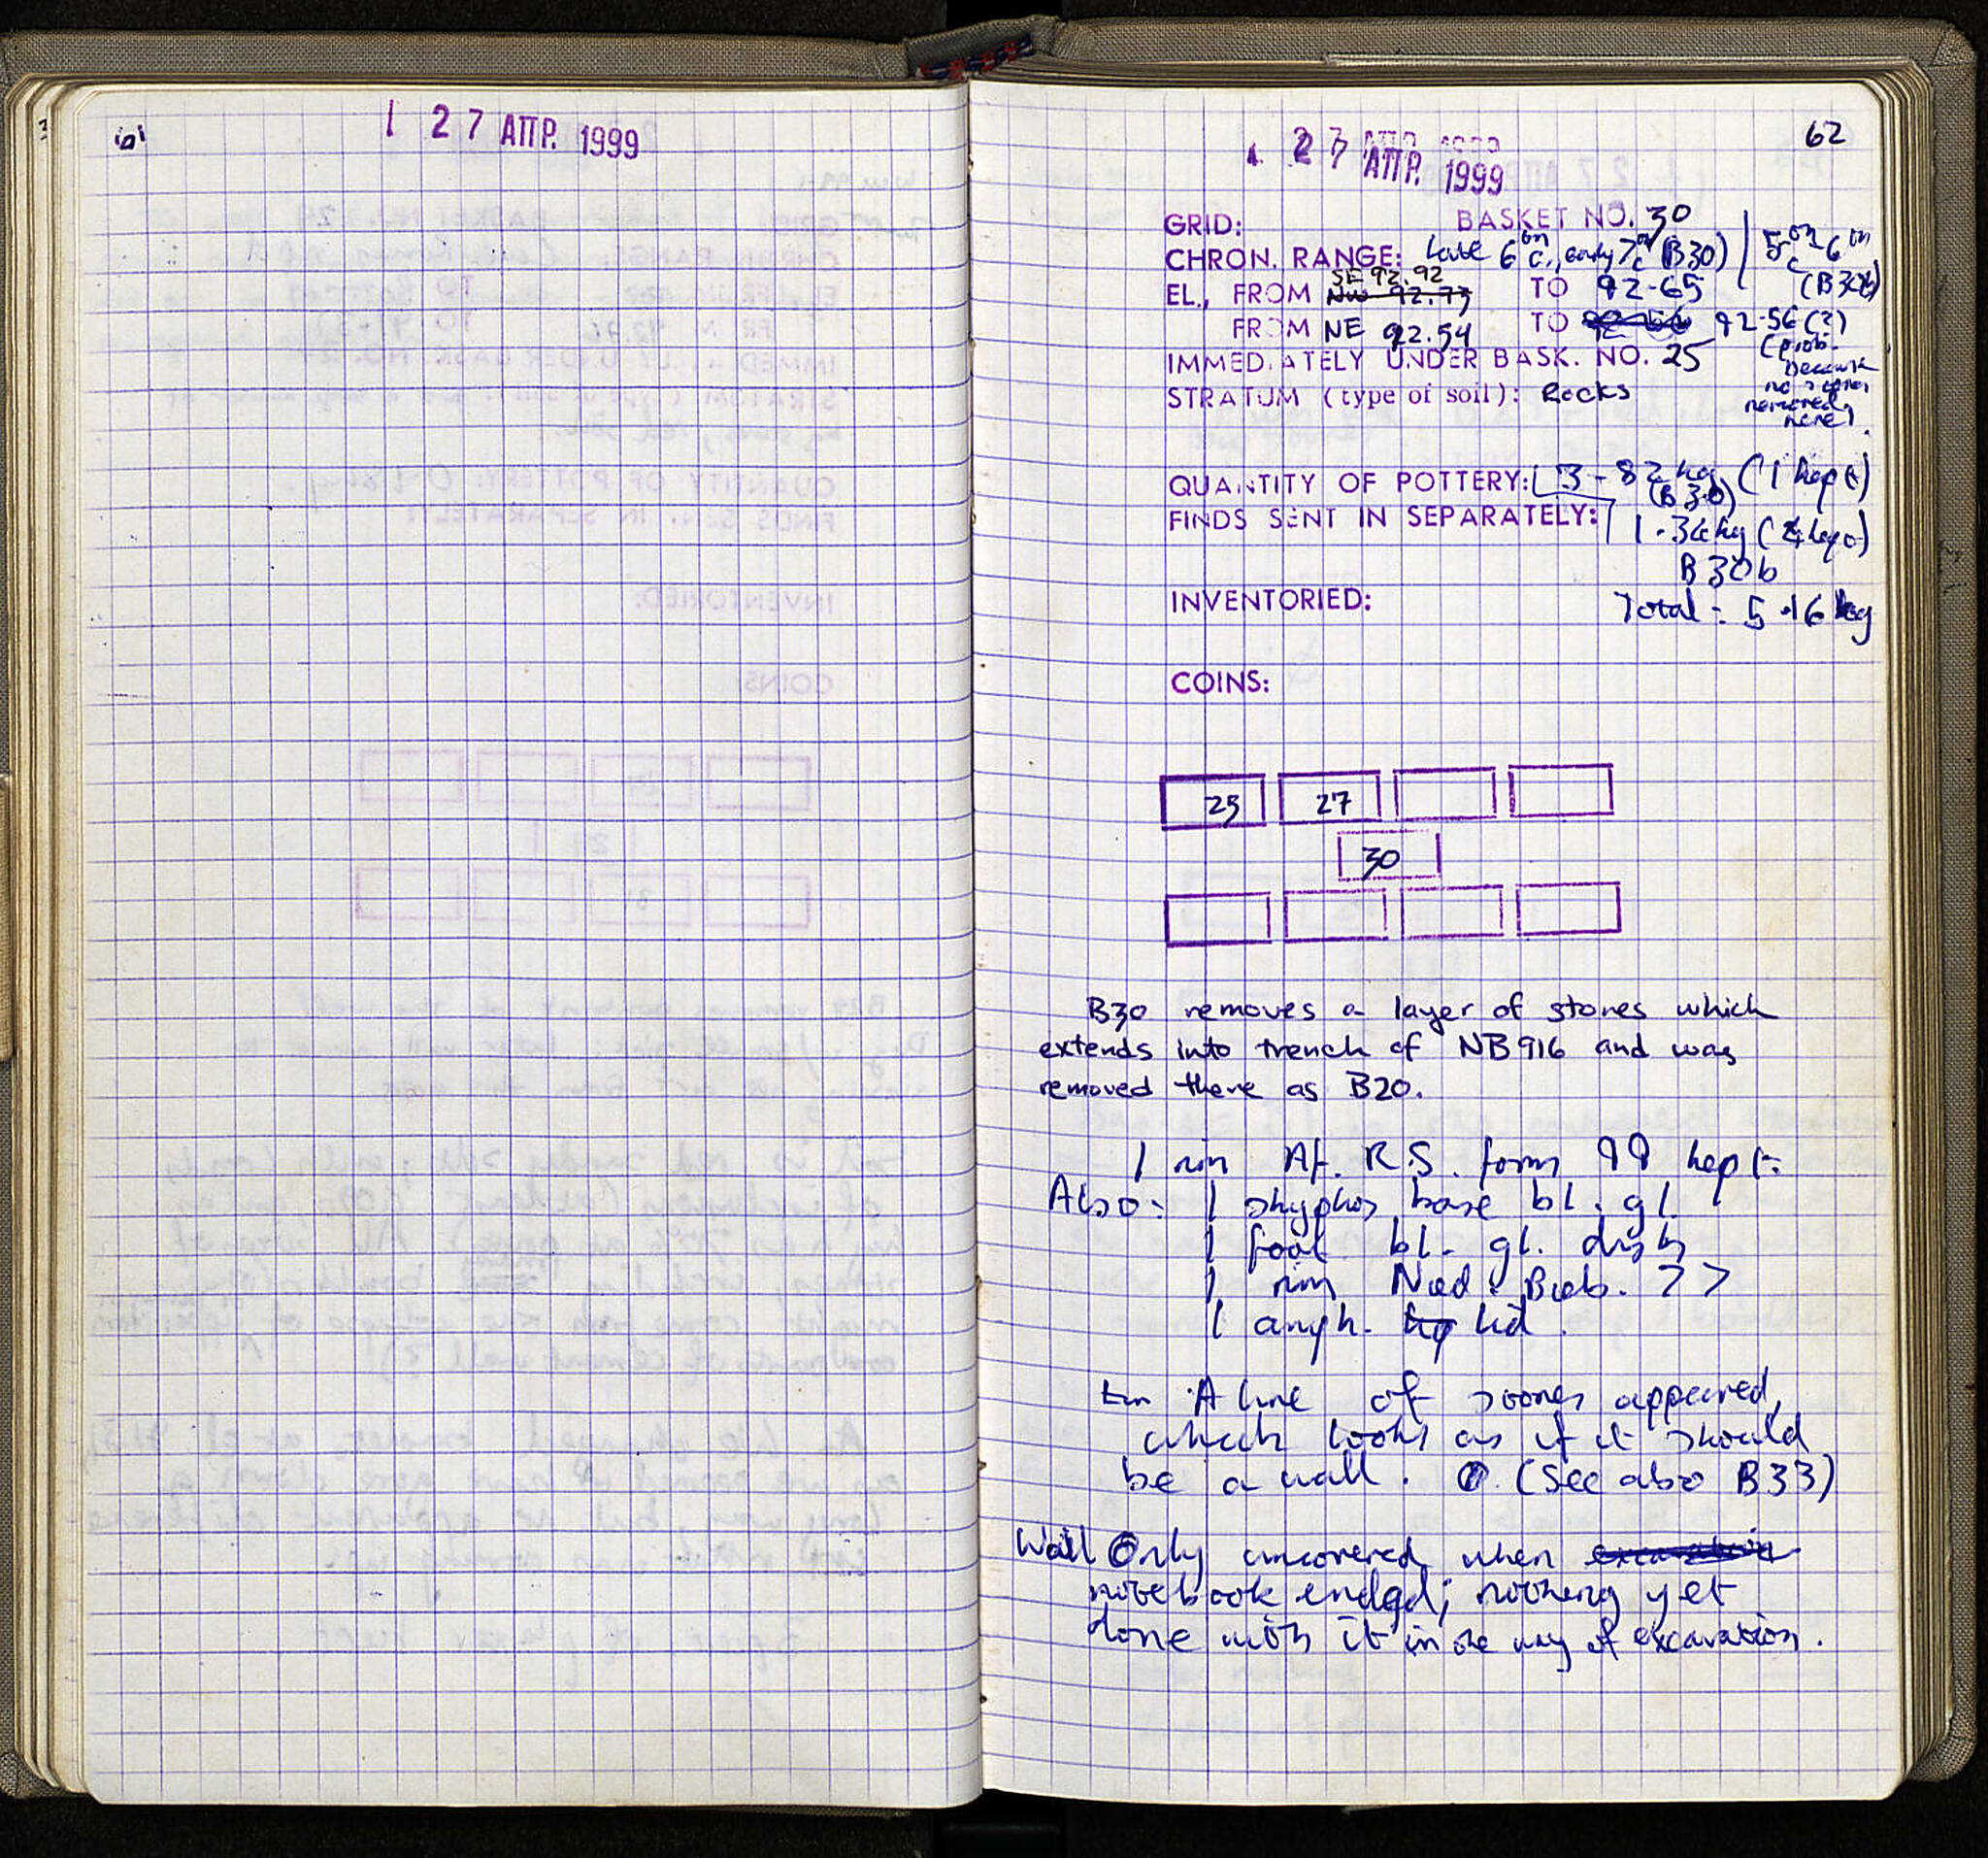 61
1 27 ΑΠΡ. 1999
62
27 ΑΠΡ. 1999
27 ΑΠΡ. 1999
GRID: BASKET NO. 30
CHRON. RANGE: Late 6th c., early 7th c (B30) | 5th c 6th (B30b)
SE 92.92
EL., FROM NW 92.73 TO 92.65
FROM NE 92.54 TO 92.56 (?)
(prob. because no stones removed here)
IMMEDIATELY UNDER BASK. NO. 25
STRATUM (type of soil): Rocks
QUANTITY OF POTTERY: 3.82 kg (1 kept)
(B30)
FINDS SENT IN SEPARATELY: 1.34 kg (4 kept)
B30b
INVENTORIED: Total: 5.16 kg
COINS:
25 27
30
B30 removes a layer of stones which
extends into trench of NB916 and was
removed there as B20.
1 rim Af. R.S. form 99 kept.
Also: 1 skyphos base bl. gl.
1 foot bl. gl. dish
1 rim Nied. Bieb. 77
1 amph. lid.
A line of stones appeared,
which looks as if it should
be a wall. (See also B33)
Wall Only uncovered when excavation
notebook ended; nothing yet
done with it in the way of excavation.